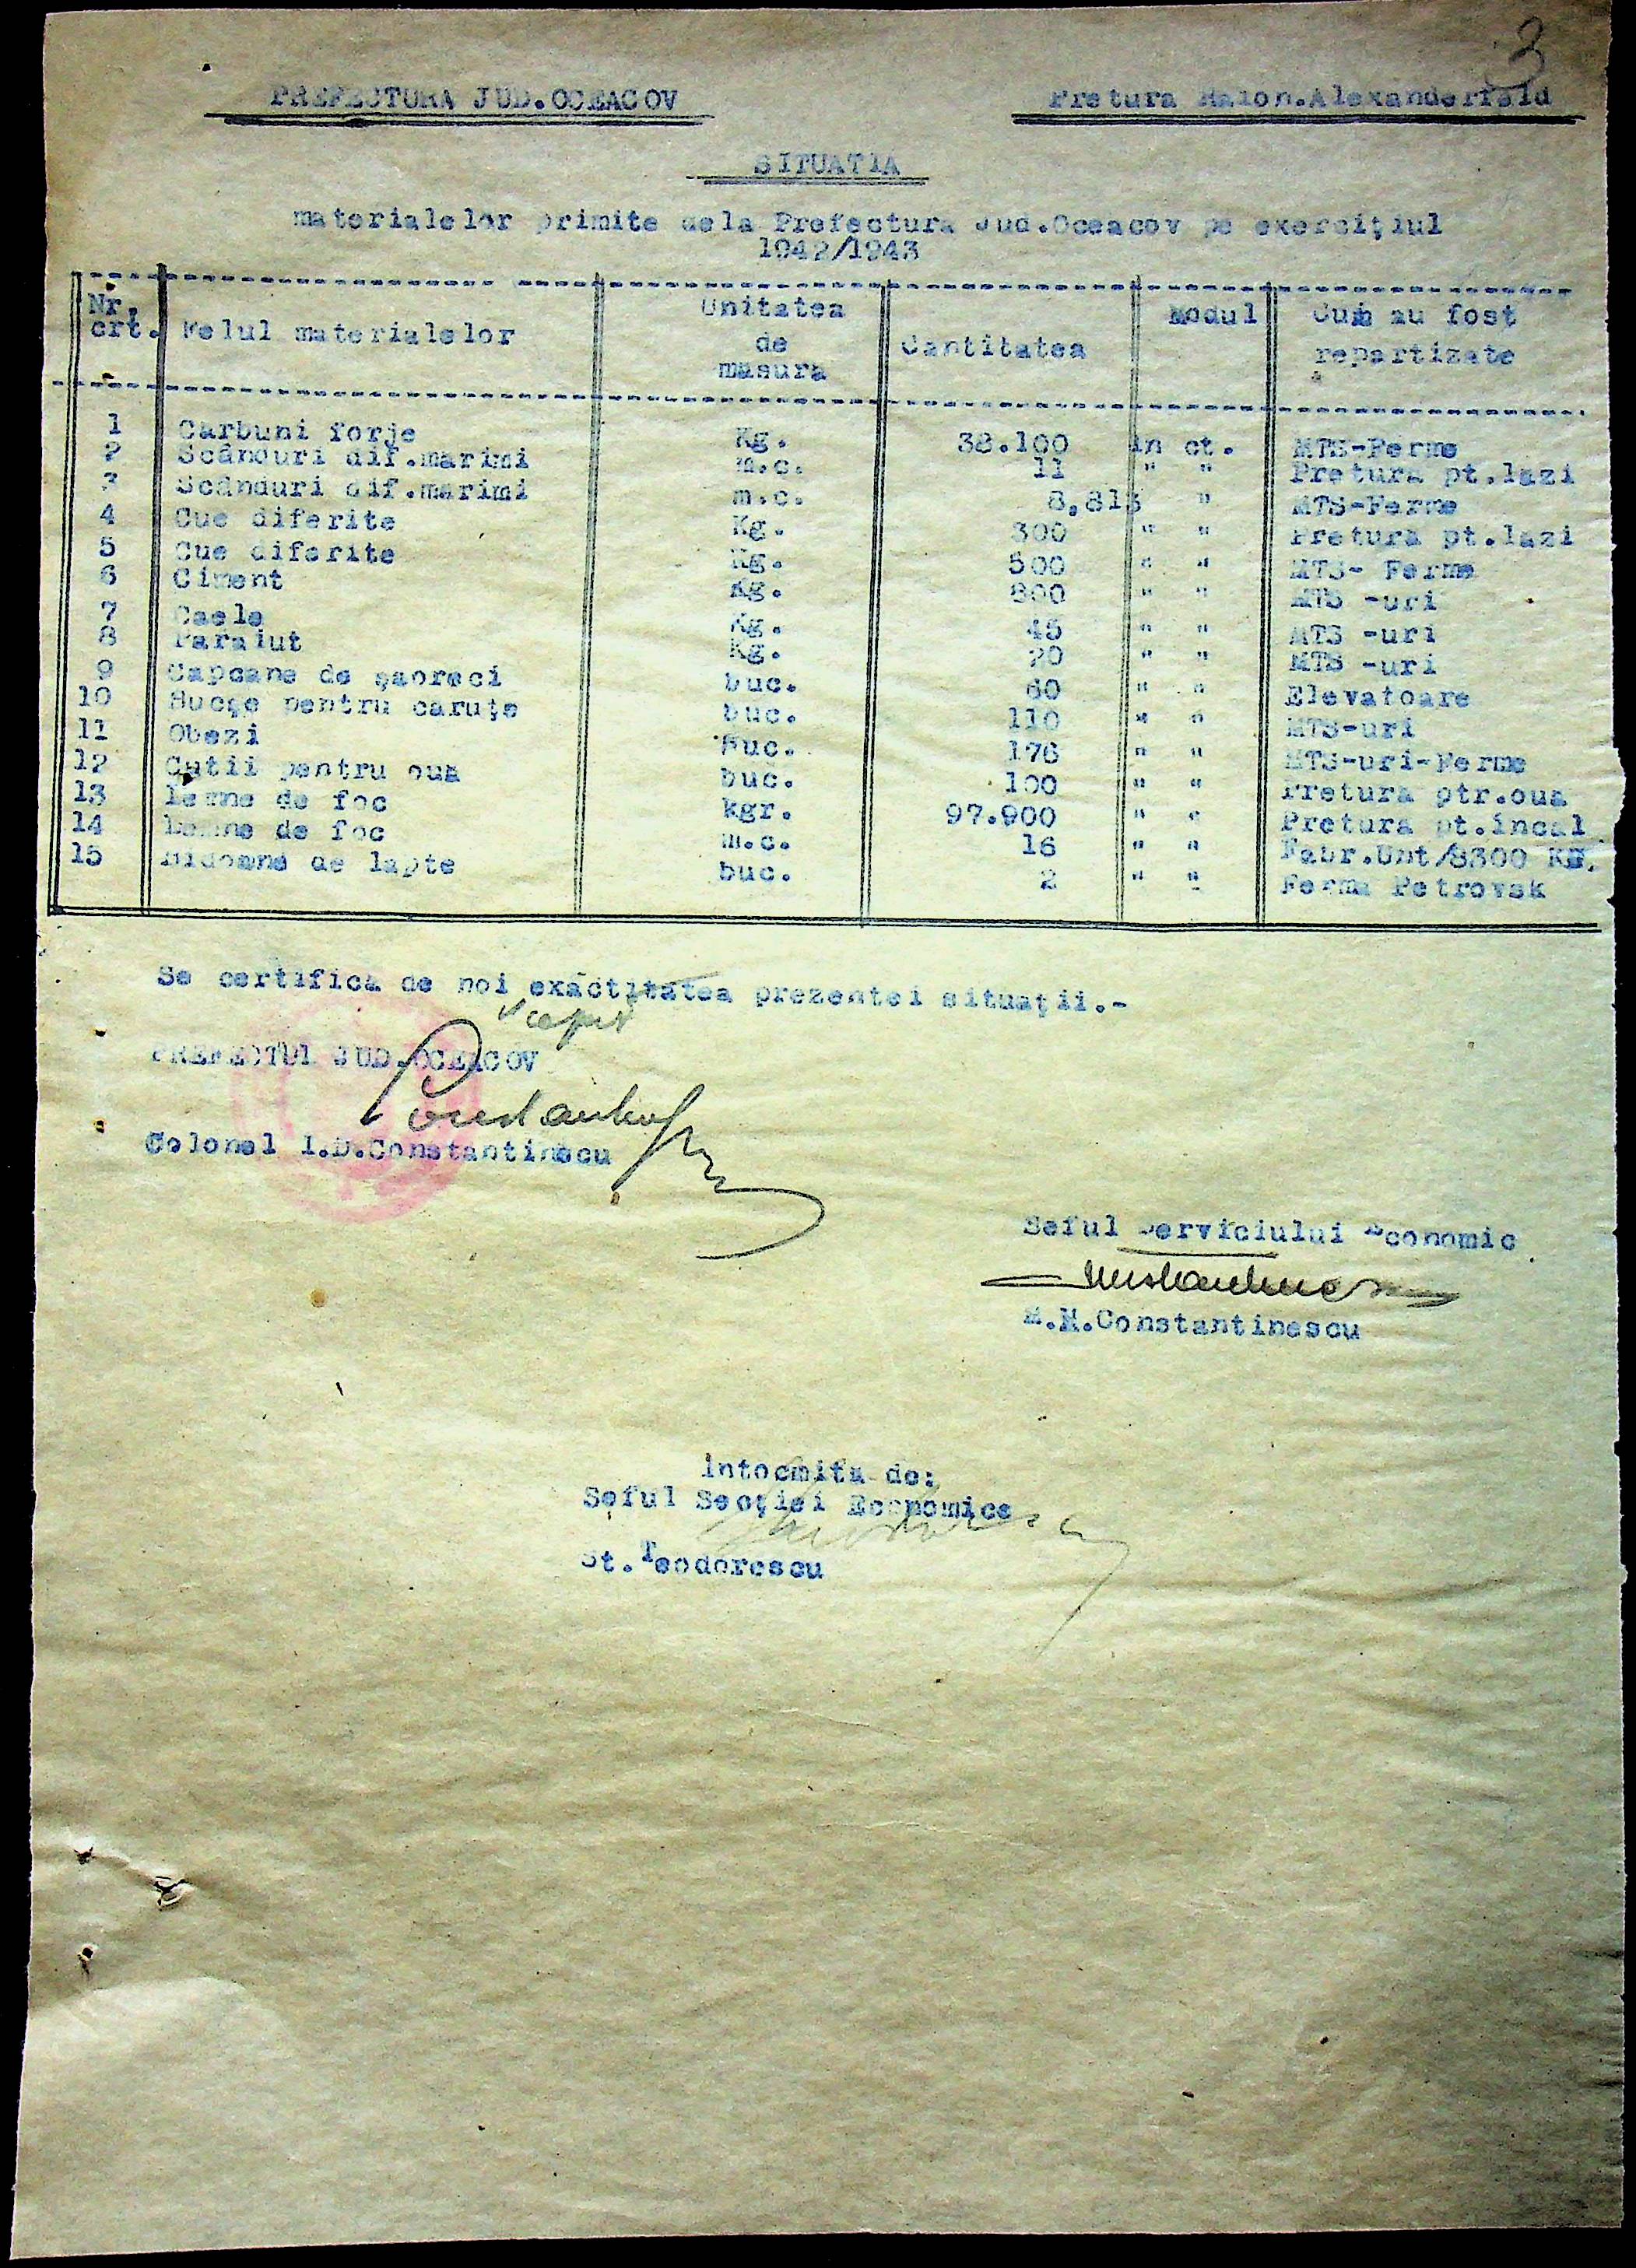 3
PREFECTURA JUD.OCEACOV
Pretura Raion.Alexanderfeld
SITUATIA
materialelor primite dela Prefectura Jud.Oceacov pe exerciţiul
1942/1943
Nr. crt. Felul materialelor Unitatea de masura Cantitatea Modul Cum au fost repartizate
1 Carbuni forje Kg. 38.100 in ct. MTS-Ferme
2 Scânduri dif.marimi m.c. 11 " " Pretura pt.lazi
3 Scânduri dif.marimi m.c. 8,813 " MTS-Ferme
4 Cue diferite Kg. 300 " " Pretura pt.lazi
5 Cue diferite Kg. 500 " " MTS- Ferme
6 Ciment Kg. 800 " " MTS -uri
7 Caele Kg. 45 " " MTS -uri
8 Kg. 20 " " MTS -uri
9 Capcane de şaoreci buc. 60 " " Elevatoare
10 Bucşe pentru caruţe buc. 110 " " MTS-uri
11 Obezi Buc. 176 " " MTS-uri-Ferme
12 Cutii pentru oua buc. 100 " " Pretura ptr.oua
13 Lemne de foc kgr. 97.900 " " Pretura pt.încal
14 Lemne de foc m.c. 16 " " Fabr.Unt/8300 KG.
15 Bidoane de lapte buc. 2 " " Ferma Petrovsk
Se certifica de noi exactitatea prezentei situaţii.-
PREFECTUL JUD.OCEACOV
Colonel I.D.Constantinescu
Seful Serviciului Economic
M.M.Constantinescu
Intocmita de:
Seful Secţiei Economice
St.Teodorescu